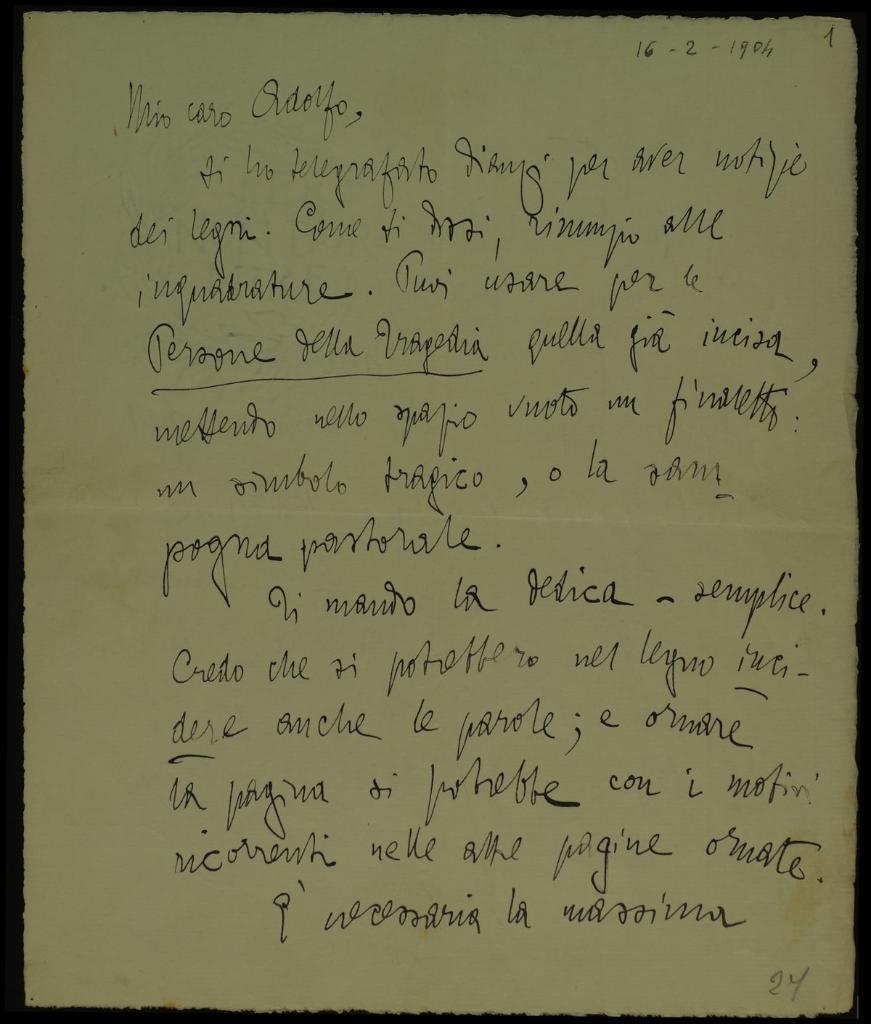 16 - 2 - 1904
1
Mio caro Adolfo,
ti ho telegrafato dianzi per aver notizie
dei legni. Come ti dissi, rinunzio alle
inquadrature. Puoi usare per le
Persone della Tragedia quella già incisa,
mettendo nello spazio vuoto un finaletto:
un simbolo tragico, o la sam-
pogna pastorale.
Ti mando la dedica - semplice.
Credo che si potrebbero nel legno inci-
dere anche le parole; e ornare
la pagina si potrebbe con i motivi
ricorrenti nelle altre pagine ornate.
È necessaria la massima
24